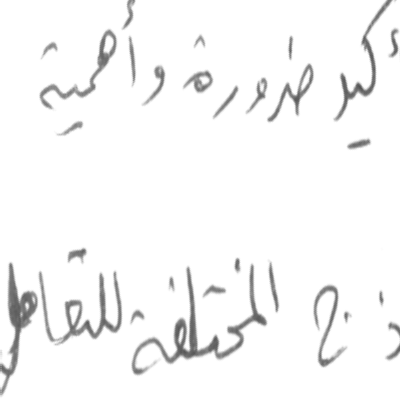 أكيد ضرورة وأهمية
ذج المختلفة للتعامل